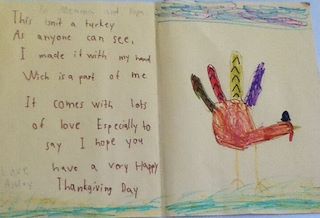 and Papa
This isn't a turkey
As anyone can see,
I made it with my hand
Wich is a part of me
It comes with lots
of love Especially to
say I hope you
have a very Happy
Thankgiving Day